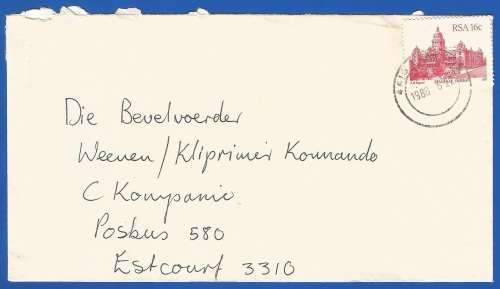 RSA 16c
Die Bevelvoerder
Weenen/Kliprivier Kommando
C Kompanie
Posbus 580
Estcourt 3310